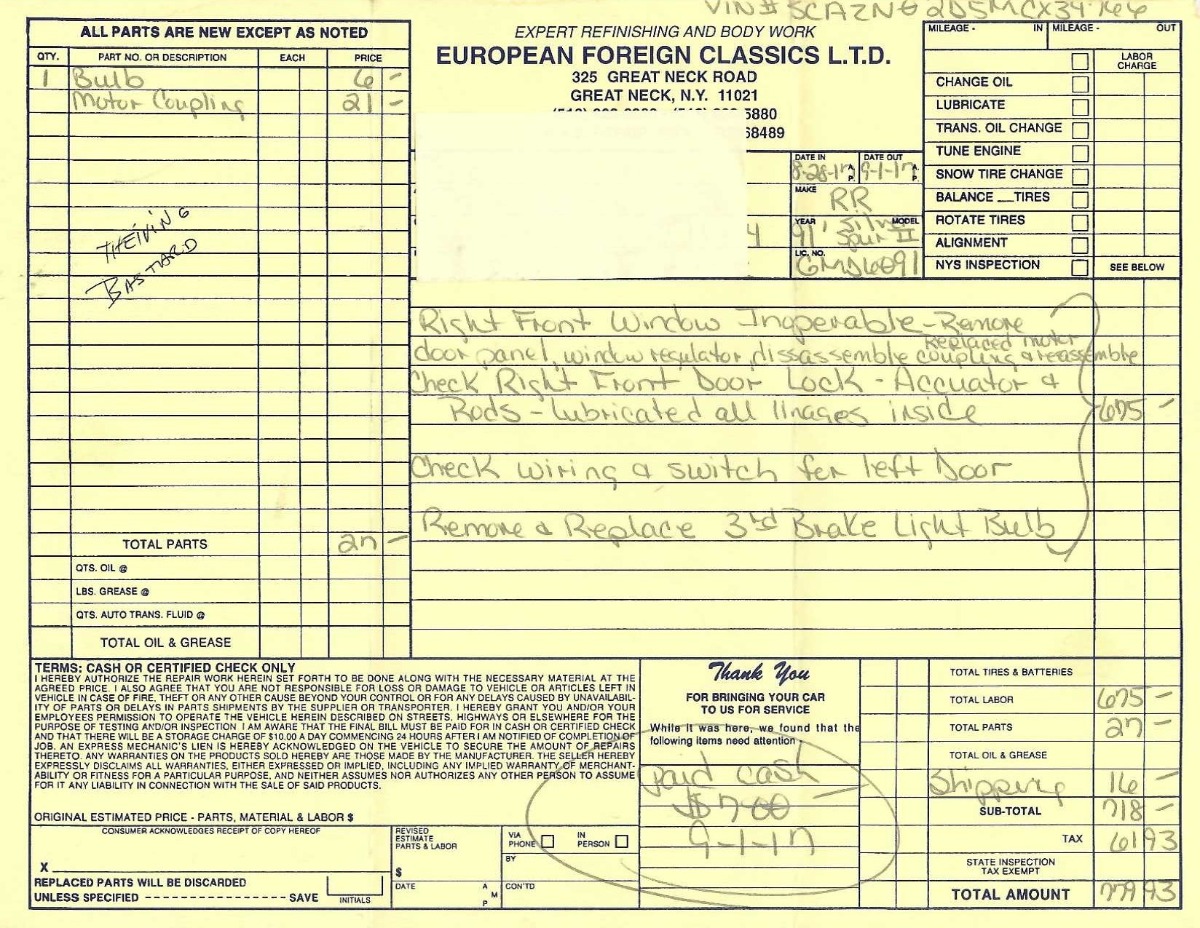 VIN# SCAZN02D5MCX34766
ALL PARTS ARE NEW EXCEPT AS NOTED
QTY. PART NO. OR DESCRIPTION EACH PRICE
1 Bulb 6 -
Motor Coupling 21 -
THEIVING
BASTARD
TOTAL PARTS 27 -
QTS. OIL @
LBS. GREASE @
QTS. AUTO TRANS. FLUID @
TOTAL OIL & GREASE
EXPERT REFINISHING AND BODY WORK
EUROPEAN FOREIGN CLASSICS L.T.D.
325 GREAT NECK ROAD
GREAT NECK, N.Y. 11021
5880
68489
DATE IN DATE OUT
8-28-17 9-1-17
A P A P
MAKE
RR
YEAR MODEL
91' Silver
Spur II
LIC. NO.
GMJ6091
MILEAGE - IN MILEAGE - OUT
LABOR
CHARGE
CHANGE OIL
LUBRICATE
TRANS. OIL CHANGE
TUNE ENGINE
SNOW TIRE CHANGE
BALANCE __TIRES
ROTATE TIRES
ALIGNMENT
NYS INSPECTION SEE BELOW
Right Front Window Inoperable - Remove
Replaced motor
door panel, window regulator, dissassemble coupling & reassemble
Check Right Front Door Lock - Accuator &
Rods - lubricated all linages inside 675 -
Check wiring & switch for left Door
Remove & Replace 3rd Brake Light Bulb
TERMS: CASH OR CERTIFIED CHECK ONLY
I HEREBY AUTHORIZE THE REPAIR WORK HEREIN SET FORTH TO BE DONE ALONG WITH THE NECESSARY MATERIAL AT THE
AGREED PRICE. I ALSO AGREE THAT YOU ARE NOT RESPONSIBLE FOR LOSS OR DAMAGE TO VEHICLE OR ARTICLES LEFT IN
VEHICLE IN CASE OF FIRE, THEFT OR ANY OTHER CAUSE BEYOND YOUR CONTROL OR FOR ANY DELAYS CAUSED BY UNAVAILABIL-
ITY OF PARTS OR DELAYS IN PARTS SHIPMENTS BY THE SUPPLIER OR TRANSPORTER. I HEREBY GRANT YOU AND/OR YOUR
EMPLOYEES PERMISSION TO OPERATE THE VEHICLE HEREIN DESCRIBED ON STREETS, HIGHWAYS OR ELSEWHERE FOR THE
PURPOSE OF TESTING AND/OR INSPECTION. I AM AWARE THAT THE FINAL BILL MUST BE PAID FOR IN CASH OR CERTIFIED CHECK
AND THAT THERE WILL BE A STORAGE CHARGE OF $10.00 A DAY COMMENCING 24 HOURS AFTER I AM NOTIFIED OF COMPLETION OF
JOB. AN EXPRESS MECHANIC'S LIEN IS HEREBY ACKNOWLEDGED ON THE VEHICLE TO SECURE THE AMOUNT OF REPAIRS
THERETO. ANY WARRANTIES ON THE PRODUCTS SOLD HEREBY ARE THOSE MADE BY THE MANUFACTURER. THE SELLER HEREBY
EXPRESSLY DISCLAIMS ALL WARRANTIES, EITHER EXPRESSED OR IMPLIED, INCLUDING ANY IMPLIED WARRANTY OF MERCHANT-
ABILITY OR FITNESS FOR A PARTICULAR PURPOSE, AND NEITHER ASSUMES NOR AUTHORIZES ANY OTHER PERSON TO ASSUME
FOR IT ANY LIABILITY IN CONNECTION WITH THE SALE OF SAID PRODUCTS.
ORIGINAL ESTIMATED PRICE - PARTS, MATERIAL & LABOR $
CONSUMER ACKNOWLEDGES RECEIPT OF COPY HEREOF
X
REPLACED PARTS WILL BE DISCARDED
UNLESS SPECIFIED - SAVE INITIALS
REVISED
ESTIMATE
PARTS & LABOR
$
DATE A M P
VIA PHONE IN PERSON
BY
CON'TD
Thank You
FOR BRINGING YOUR CAR
TO US FOR SERVICE
While it was here, we found that the
following items need attention
Paid cash
$700
9-1-17
TOTAL TIRES & BATTERIES
TOTAL LABOR 675 -
TOTAL PARTS 27 -
TOTAL OIL & GREASE
Shipping 16 -
SUB-TOTAL 718 -
TAX 61 93
STATE INSPECTION
TAX EXEMPT
TOTAL AMOUNT 779 93